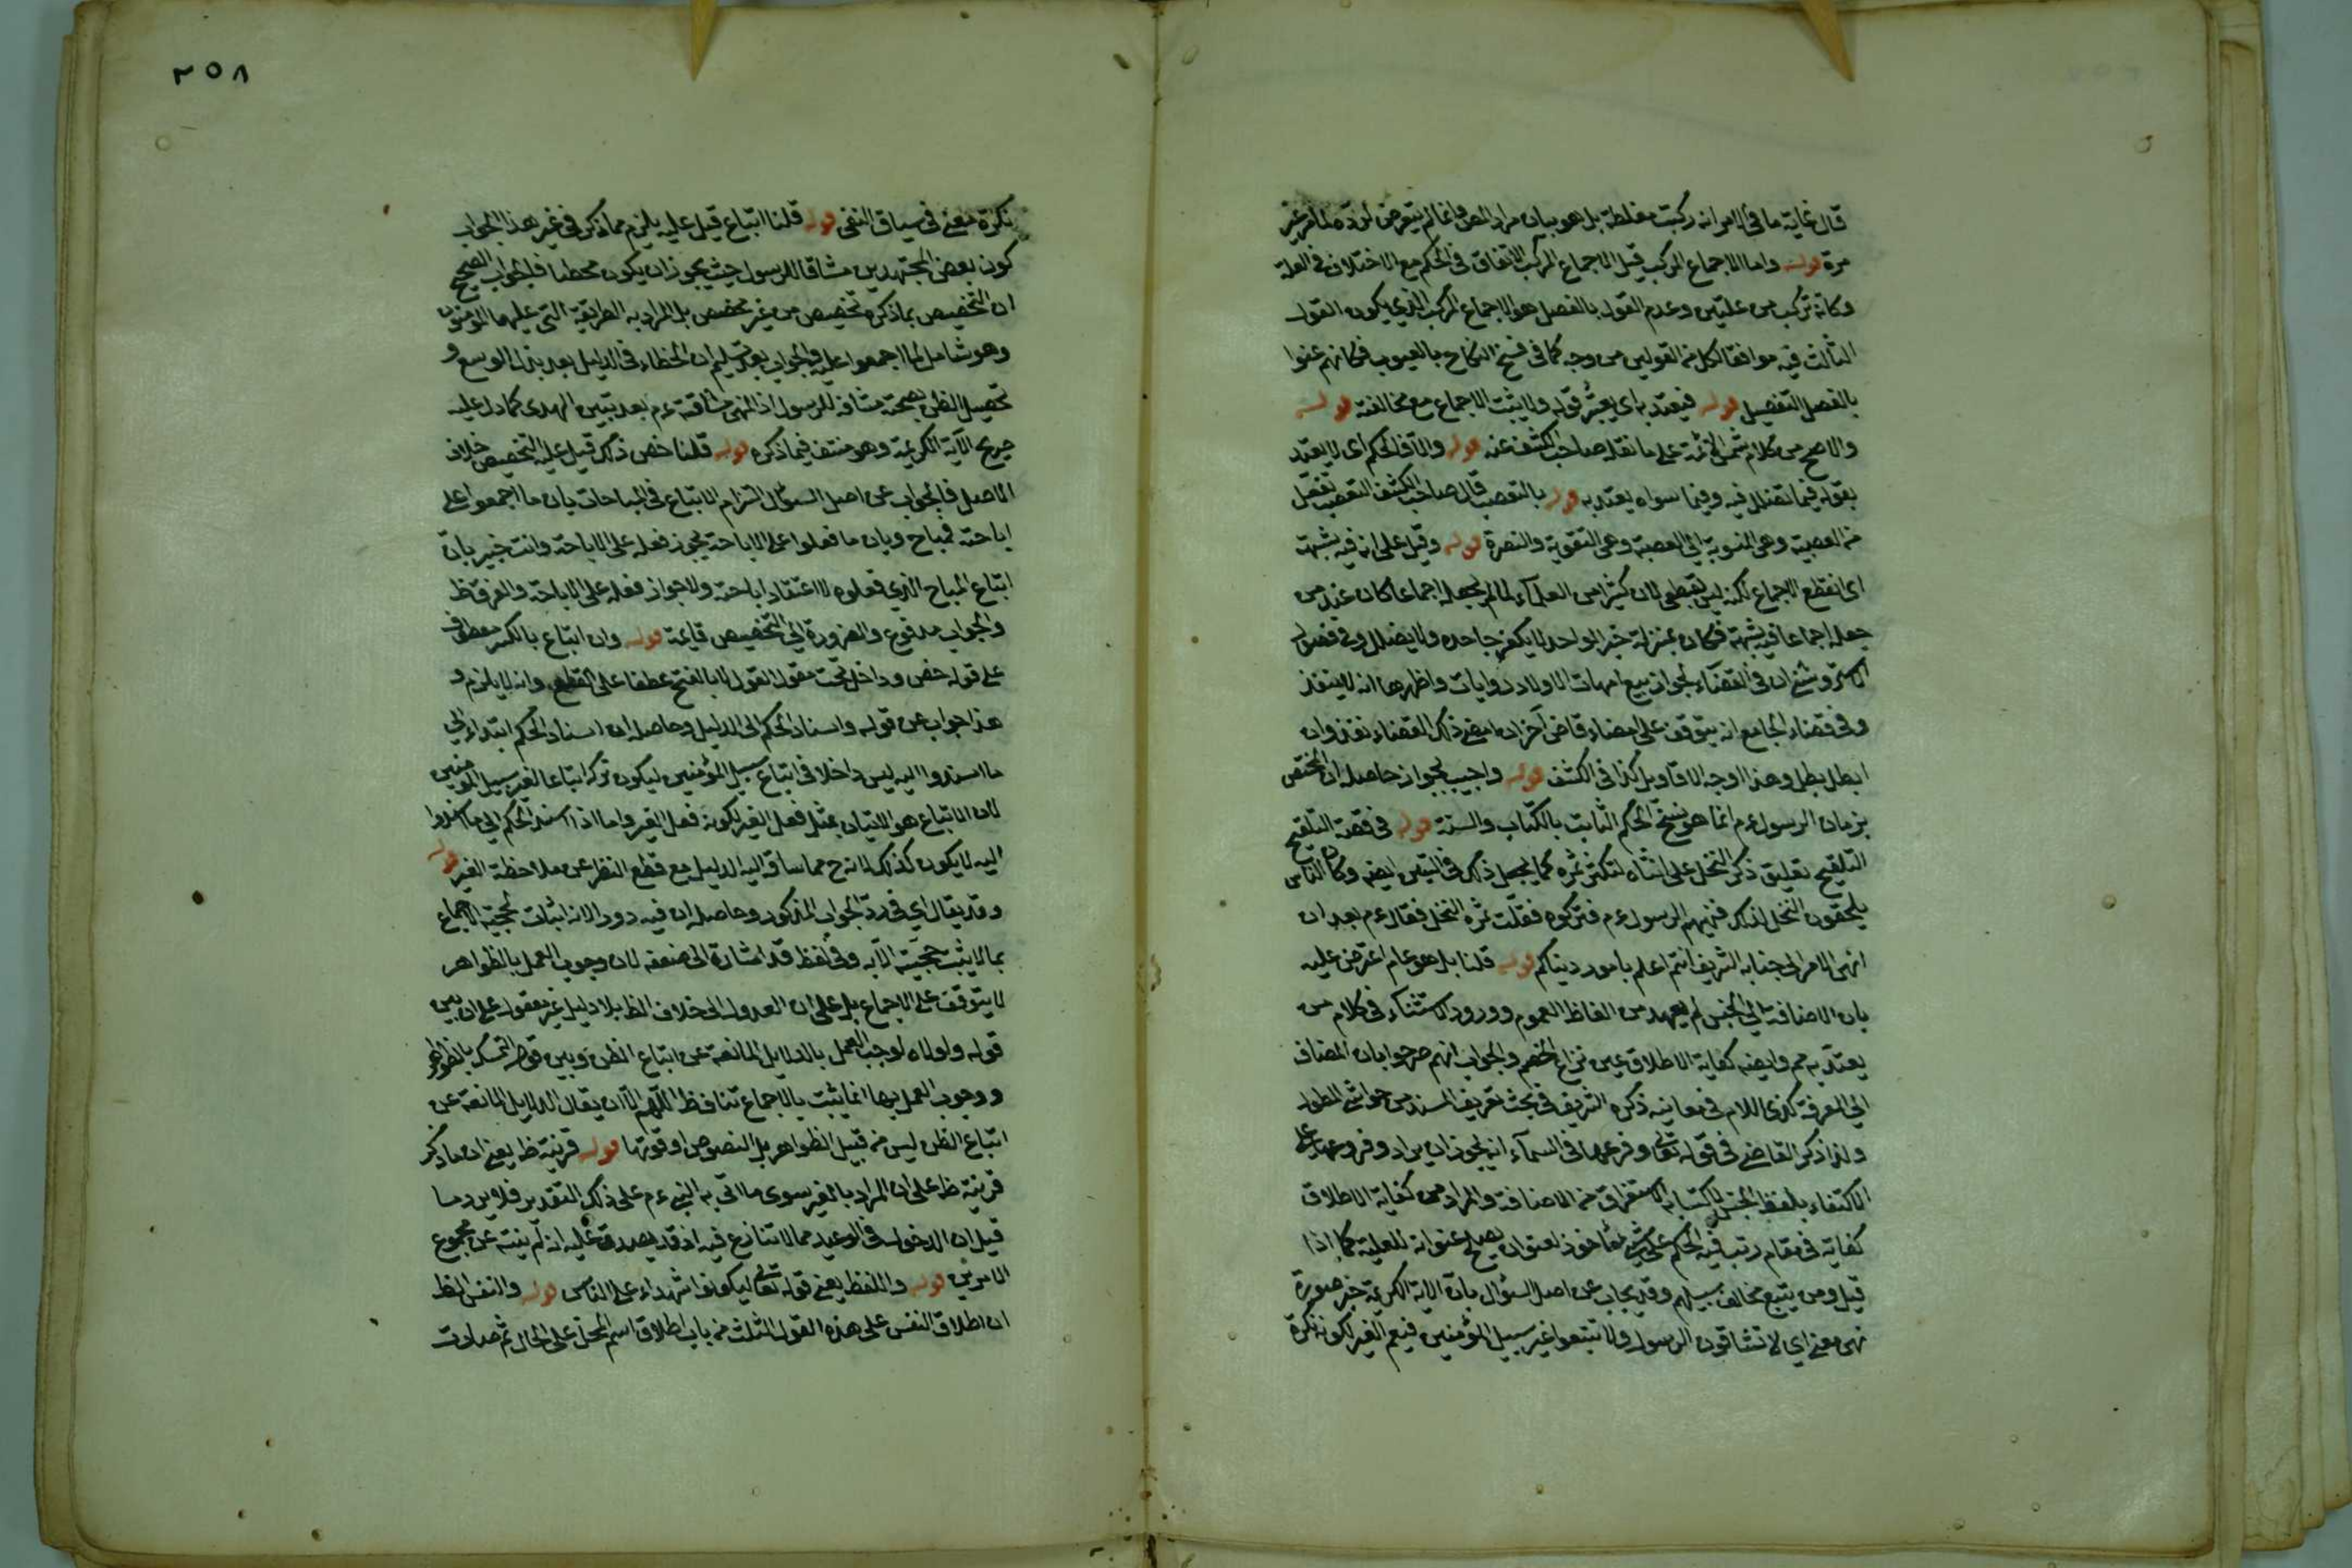 قال غاية ما في الامر انه ركبت مغلطة بل هو بيان مراد المص وانما لم يتعرض لرده لما مر غير
مرة قوله واما الاجماع المركب قيل الاجماع المركب الاتفاق في الحكم مع الاختلاف في العلة
وكانه تركب من علتين وعدم القول بالفصل هو الاجماع المركب الذي يكون القول
الثالث فيه موافقا لكل من القولين من وجه كما في فسخ النكاح بالعيوب فكانهم عنوا
بالفصل التفصيل قوله فيعتد به اي يعتبر قوله ولا يثبت الاجماع مع مخالفته قوله
والاصح من كلام شمس الائمة على ما نقله صاحب الكشف عنه قوله والا فالحكم اى لا يعتد
بقوله فيما يضلل فيه وفيما سواه يعتد به قوله بالتعصب قال صاحب الكشف التعصب تفعل
من العصبية وهى المنسوبة الى العصبة وهى التقوية والنصرة قوله وقيل على انه فيه شبهة
اى انقطع الاجماع لكنه ليس بقطعى لان كثيرا من العلماء لما لم يجعله اجماعا كان عند من
جعله اجماعا فيه شبهة فكان بمنزلة خبر الواحد لا يكفر جاحده ولا يضلل وفي فصول
الاستروشنى ان في القضاء بجواز بيع امهات الاولاد روايات واظهرها انه لا ينفذ
وفي قضاء الجامع انه يتوقف على امضاء قاض آخر ان امضى ذلك القضاء نفذ وان
ابطل بطل وهذا اوجه الاقاويل كذا في الكشف قوله واجيب بجواز حاصله ان المختص
بزمان الرسول ءم انما هو نسخ الحكم الثابت بالكتاب والسنة قوله في قصة التلقيح
التلقيح تعليق ذكر النخل على انثاه لتكثر ثمره كما يجعل ذلك في التين ايضه وكان الناس
يلحقون النخل لذلك فنهيهم الرسول ءم فتركوه فقلت ثمره النخل فقال ءم بعد ان
انهى الامر الى جنابه الشريف انتم اعلم بامور دنياكم قوله قلنا بل هو عام اعترض عليه
بان الاضافة الى الجنس لم يعهد من الفاظ العموم وورود الاستثناء في كلام من
يعتد به مم وايضه كفاية الاطلاق عين نزاع الخصم والجواب انهم صرحوا بان المضاف
الى المعرفة كذى اللام في معانيه ذكره الشريف في بحث تعريف المسند من حواشى المطول
ولذا ذكر القاضى في قوله تعالى وفرعها في السماء انه يجوز ان يراد وفروعها على
الاكتفاء بلفظ الجنس لاكتسابه الاستغراق من الاضافة والمراد من كفاية الاطلاق
كفايته في مقام رتب فيه الحكم على شئ مأخوذ بعنوان يصلح عنوانه للعلية كما اذا
قيل ومن يتبع مخالف سبيلهم وقد يجاب عن اصل السؤال بان الاية الكريمة خبر صورة
نهى معنى اي لا تشاقون الرسول ولا تتبعوا غير سبيل المؤمنين فيعم الغير لكونه نكرة
٢٥٨
نكرة معنى في سياق النفى قوله قلنا اتباع قيل عليه يلزم مما ذكر في غير هذا الجواب
كون بعض المجتهدين مشاقا للرسول حيث يجوز ان يكون مخطئا فالجواب الصحيح
ان التخصيص بما ذكره تخصيص من غير مخصص بل المراد به الطريقة التى عليها المؤمنون
وهو شامل لما اجمعوا عليه والجواب بعد تسليم ان الخطاء في الدليل بعد بذل الوسع و
تحصيل الظن بصحته مشاقة للرسول اذ المنهى مشاقته ءم بعد تبيين الهدى كما دل عليه
صريح الآية الكريمة وهو منتف فيما ذكره قوله قلنا خص ذلك قيل عليه التخصيص خلاف
الاصل فالجواب عن اصل السؤال التزام الاتباع في المباحات بان ما اجمعوا على
اباحته فمباح وبان ما فعلوا على الاباحة يجوز فعله على الاباحة وانت خبير بان
اتباع المباح الذي فعلوه لا اعتقاد اباحته ولا جواز فعله على الاباحة والفرق ظ
والجواب مدفوع والضرورة الى التخصيص قايمة قوله وان اتباع بالكسر معطوف
على قوله خص وداخل تحت مقول القول لا بالفتح عطفا على القطع وانه لا يلزم و
هذا جواب عن قوله واسناد الحكم الى الدليل وحاصله ان اسناد الحكم ابتداء الى
ما اسندوا اليه ليس داخلا في اتباع سبيل المؤمنين ليكون تركه اتباعا لغير سبيل المؤمنين
لان الاتباع هو الاتيان بمثل فعل الغير لكونه فعل الغير واما اذا اسند الحكم الى ما اسندوا
اليه لا يكون كذلك لانه ح مما ساقه اليه الدليل مع قطع النظر عن ملاحظة الغير قوله
وقد يقال اي في رد الجواب المذكور وحاصله ان فيه دورا لانه اثبات لحجية الاجماع
بما لا يثبت حجيته الا به وفي لفظ قد اشارة الى ضعفه لان وجوب العمل بالظواهر
لا يتوقف على الاجماع بل على ان العدول الى خلاف الظ بلا دليل غير معقول على ان بين
قوله ولولاه لوجب العمل بالدلايل المانعة عن اتباع الظن وبين قوله التمسك بالظواهر
ووجوب العمل بها انما يثبت بالاجماع تناف ظ اللهم الا ان يقال الدلايل المانعة عن
اتباع الظن ليس من قبيل الظواهر بل النصوص او قوتها قوله قرينة ظ يعنى ان ما ذكر
قرينة ظ على ان المراد بالغير سوى ما اتى به النبى ءم على ذلك التقدير فلا يرد ما
قيل ان الدخول في الوعيد مما لا تنازع فيه اذ قد يصدق عليه انه لم ينته عن مجموع
الامرين قوله واللفظ يعنى قوله تعالى ليكونوا شهداء على الناس قوله والنفس الظ
ان اطلاق النفس على هذه القول الثلث من باب اطلاق اسم المحل على الحال ثم صارت